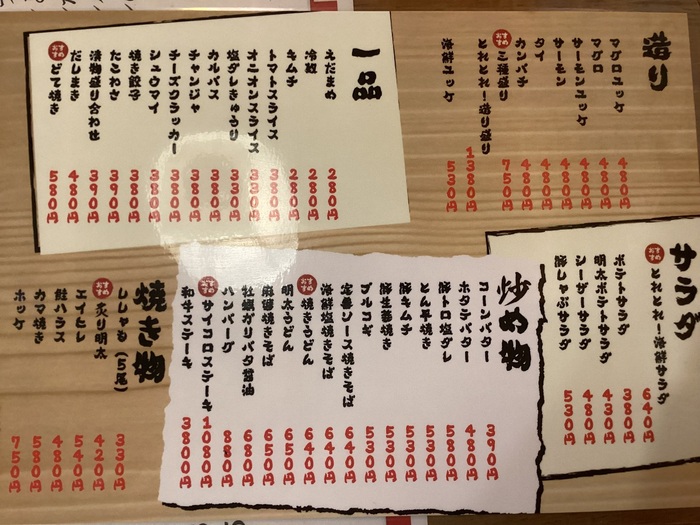 造り
マグロユッケ 480円
マグロ 480円
サーモンユッケ 480円
サーモン 480円
タイ 480円
カンパチ 480円
おすすめ 三種盛り 750円
とれとれ!造り盛り 1380円
海鮮ユッケ 530円
一品
えだまめ 280円
冷奴 280円
キムチ 280円
トマトスライス 380円
オニオンスライス 330円
塩ダレきゅうり 330円
カルパス 380円
チャンジャ 380円
チーズクラッカー 380円
シュウマイ 380円
焼き餃子 380円
たこわさ 390円
漬物盛り合わせ 390円
だしまき 480円
おすすめ どて焼き 580円
サラダ
おすすめ とれとれ!海鮮サラダ 640円
ポテトサラダ 380円
明太ポテトサラダ 430円
シーザーサラダ 480円
豚しゃぶサラダ 530円
炒め物
コーンバター 390円
ホタテバター 480円
豚トロ塩ダレ 580円
とん平焼き 530円
豚キムチ 530円
豚生姜焼き 530円
プルコギ 530円
定番ソース焼きそば 640円
海鮮塩焼きそば 640円
おすすめ 焼きうどん 640円
明太うどん 650円
麻婆焼きそば 650円
牡蠣ガリバタ醤油 680円
ハンバーグ 880円
おすすめ サイコロステーキ 1080円
和牛ステーキ 3800円
焼き物
ししゃも(5尾) 330円
おすすめ 炙り明太 420円
エイヒレ 540円
鮭ハラス 480円
カマ焼き 580円
ホッケ 750円